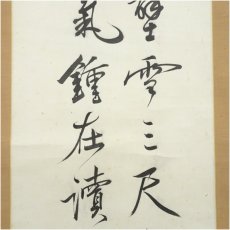 壁雪三尺
氣鍾在讀